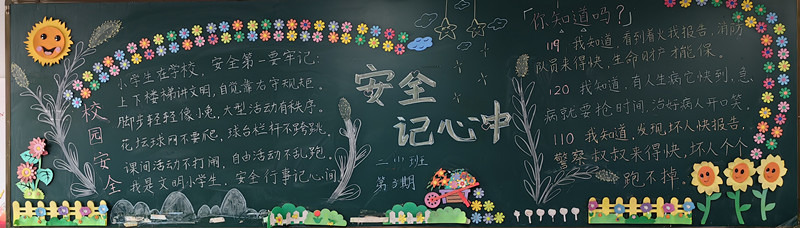 校园安全
小学生在学校，安全第一要牢记：
上下楼梯讲文明，自觉靠右守规矩。
脚步轻轻像小兔，大型活动有秩序。
花坛球网不要爬，球台栏杆不跨跳。
课间活动不打闹，自由活动不乱跑。
我是文明小学生，安全行事记心间。
安全
记心中
二小班
第3期
「你知道吗？」
119 我知道，看到着火我报告，消防
队员来得快，生命财产才能保。
120 我知道，有人生病它快到，急
病就要抢时间，治好病人开口笑。
110 我知道，发现坏人快报告，
警察叔叔来得快，坏人个个
跑不掉。